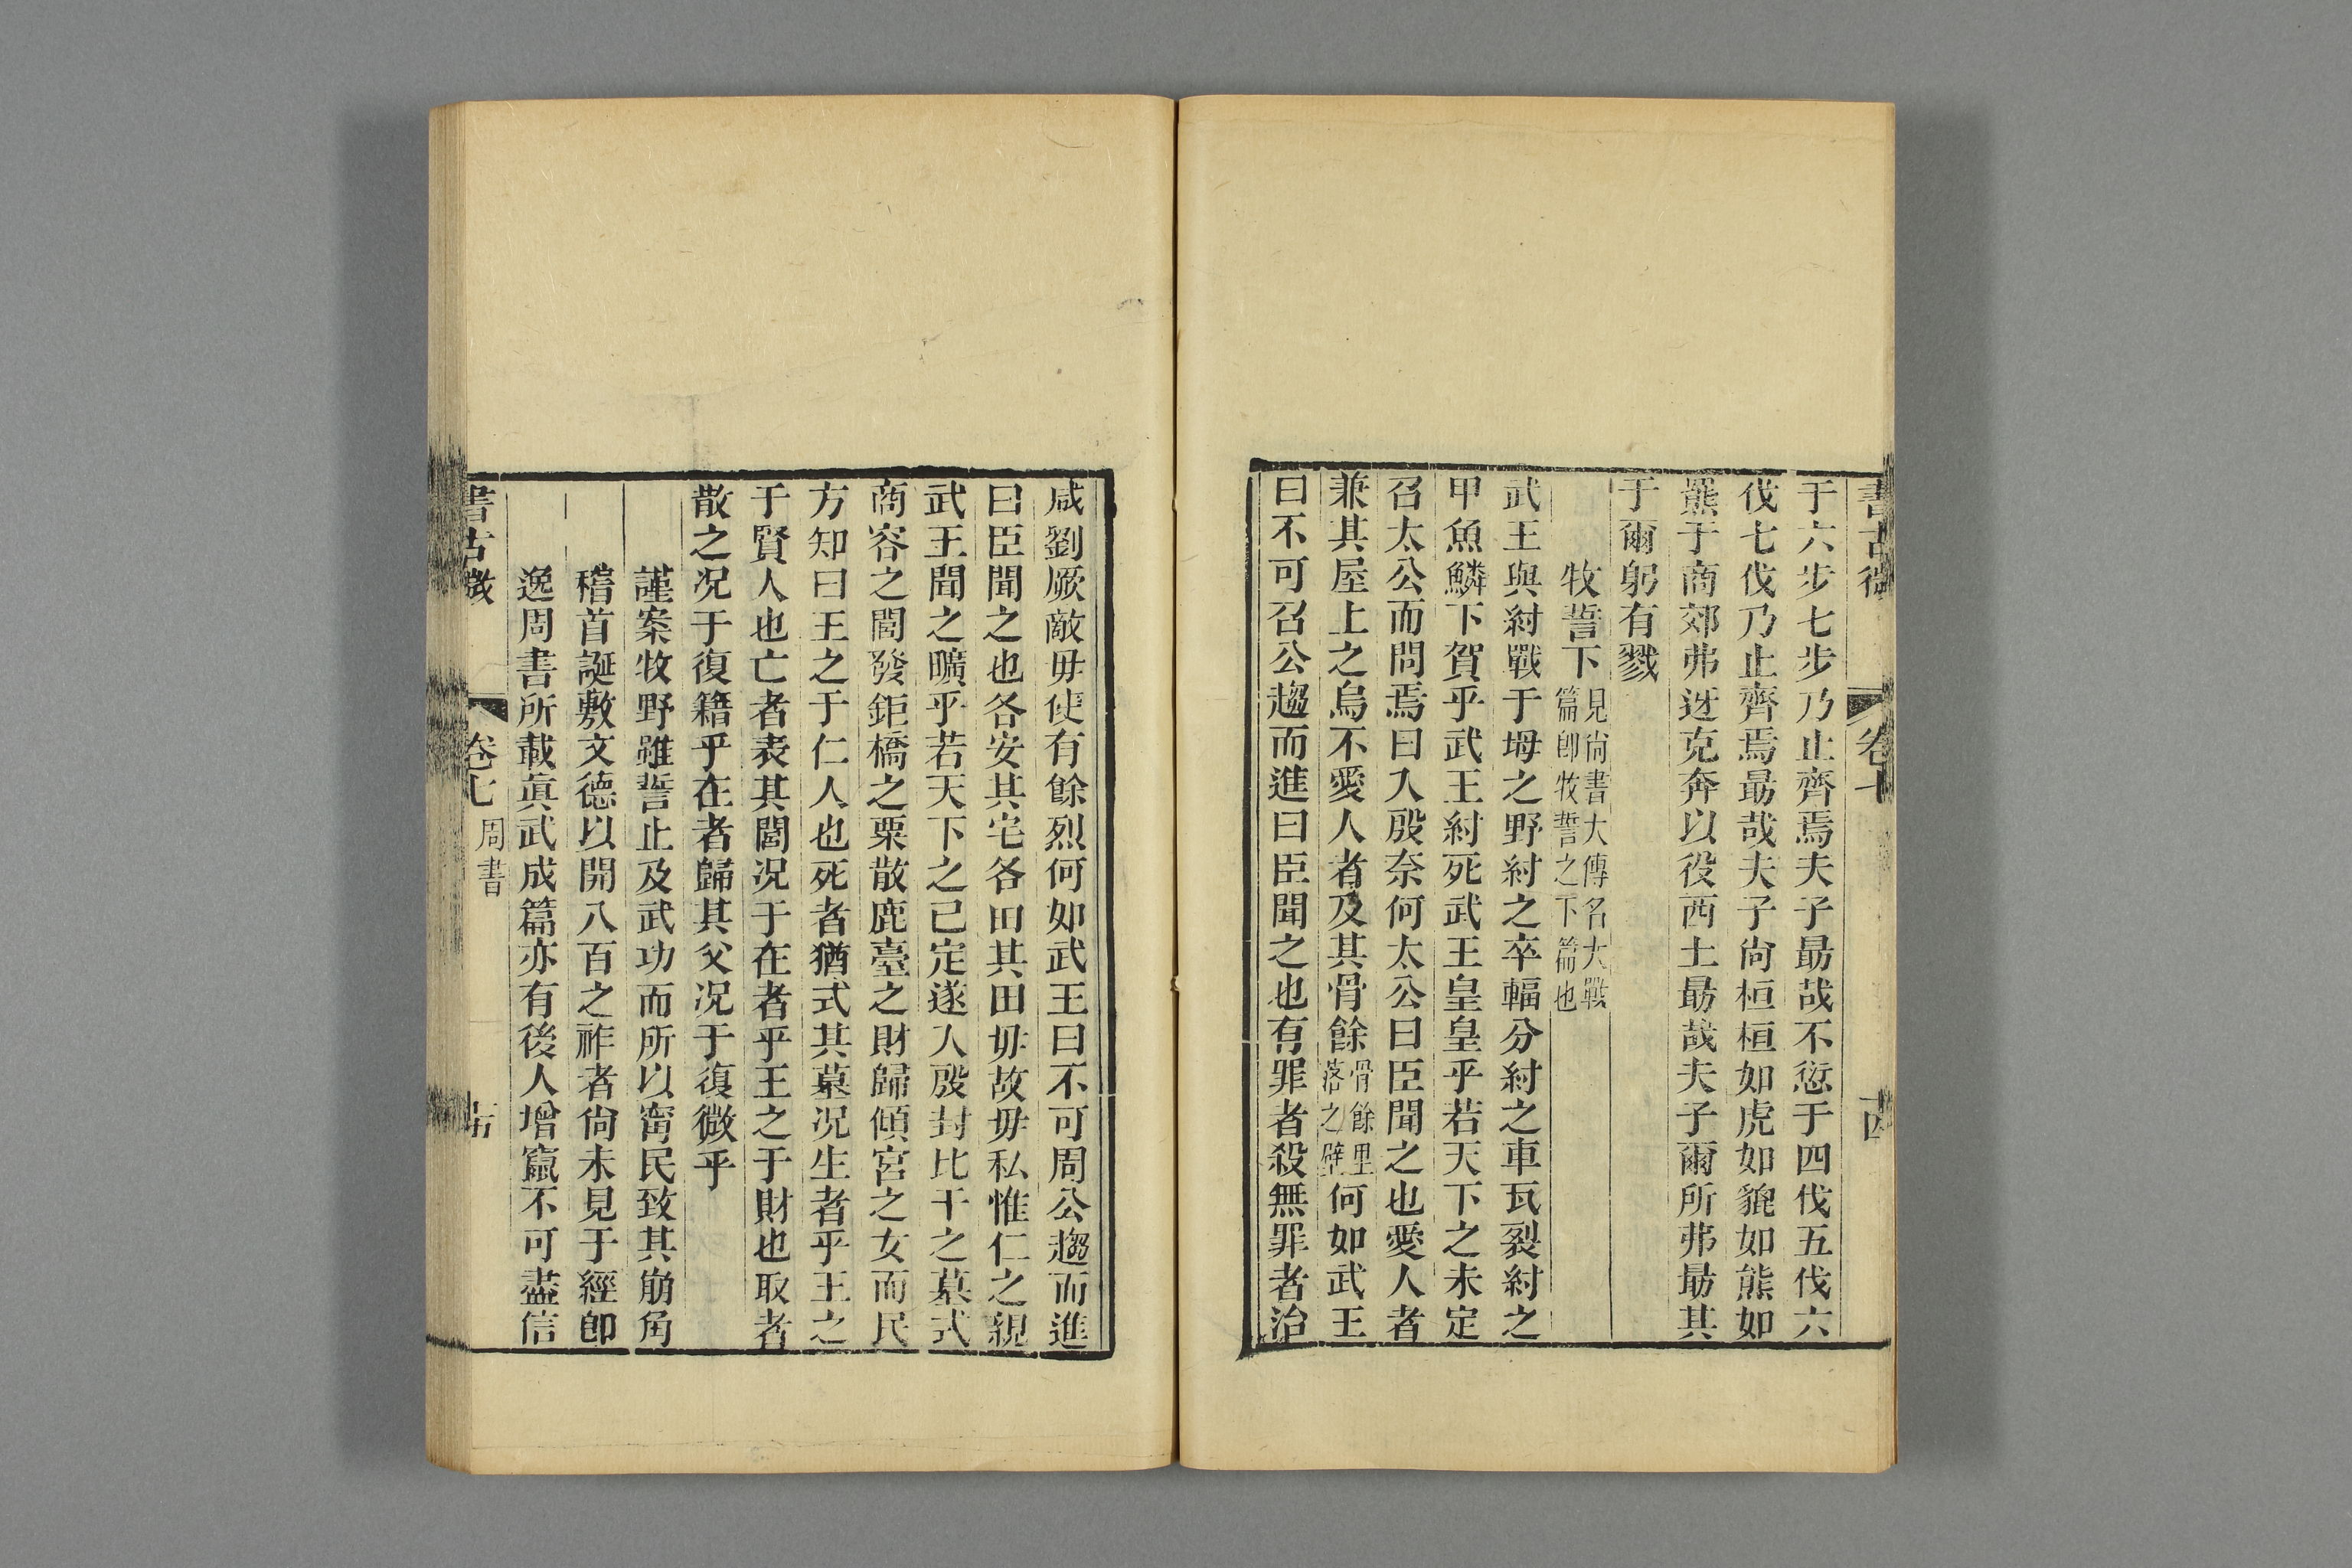 書古微 卷七 十四
于六步七步乃止齊焉夫子勖哉不愆于四伐五伐六
伐七伐乃止齊焉勖哉夫子尙桓桓如虎如貔如熊如
羆于商郊弗迓克奔以役西土勖哉夫子爾所弗勖其
于爾躬有戮
牧誓下見尙書大傳名大戰篇卽牧誓之下篇也
武王與紂戰于坶之野紂之卒輻分紂之車瓦裂紂之
甲魚鱗下賀乎武王紂死武王皇皇乎若天下之未定
召太公而問焉曰入殷奈何太公曰臣聞之也愛人者
兼其屋上之烏不愛人者及其骨餘骨餘里落之壁何如武王
曰不可召公趨而進曰臣聞之也有罪者殺無罪者治
咸劉厥敵毋使有餘烈何如武王曰不可周公趨而進
曰臣聞之也各安其宅各田其田毋故毋私惟仁之親
武王聞之曠乎若天下之已定遂入殷封比干之墓式
商容之閭發鉅橋之粟散鹿臺之財歸傾宮之女而民
方知曰王之于仁人也死者猶式其墓况生者乎王之
于賢人也亡者表其閭况于在者乎王之于財也取者
散之况于復籍乎在者歸其父况于復微乎
謹案牧野雖誓止及武功而所以甯民致其崩角
稽首誕敷文德以開八百之祚者尙未見于經卽
逸周書所載眞武成篇亦有後人增竄不可盡信
書古微 卷七 周書